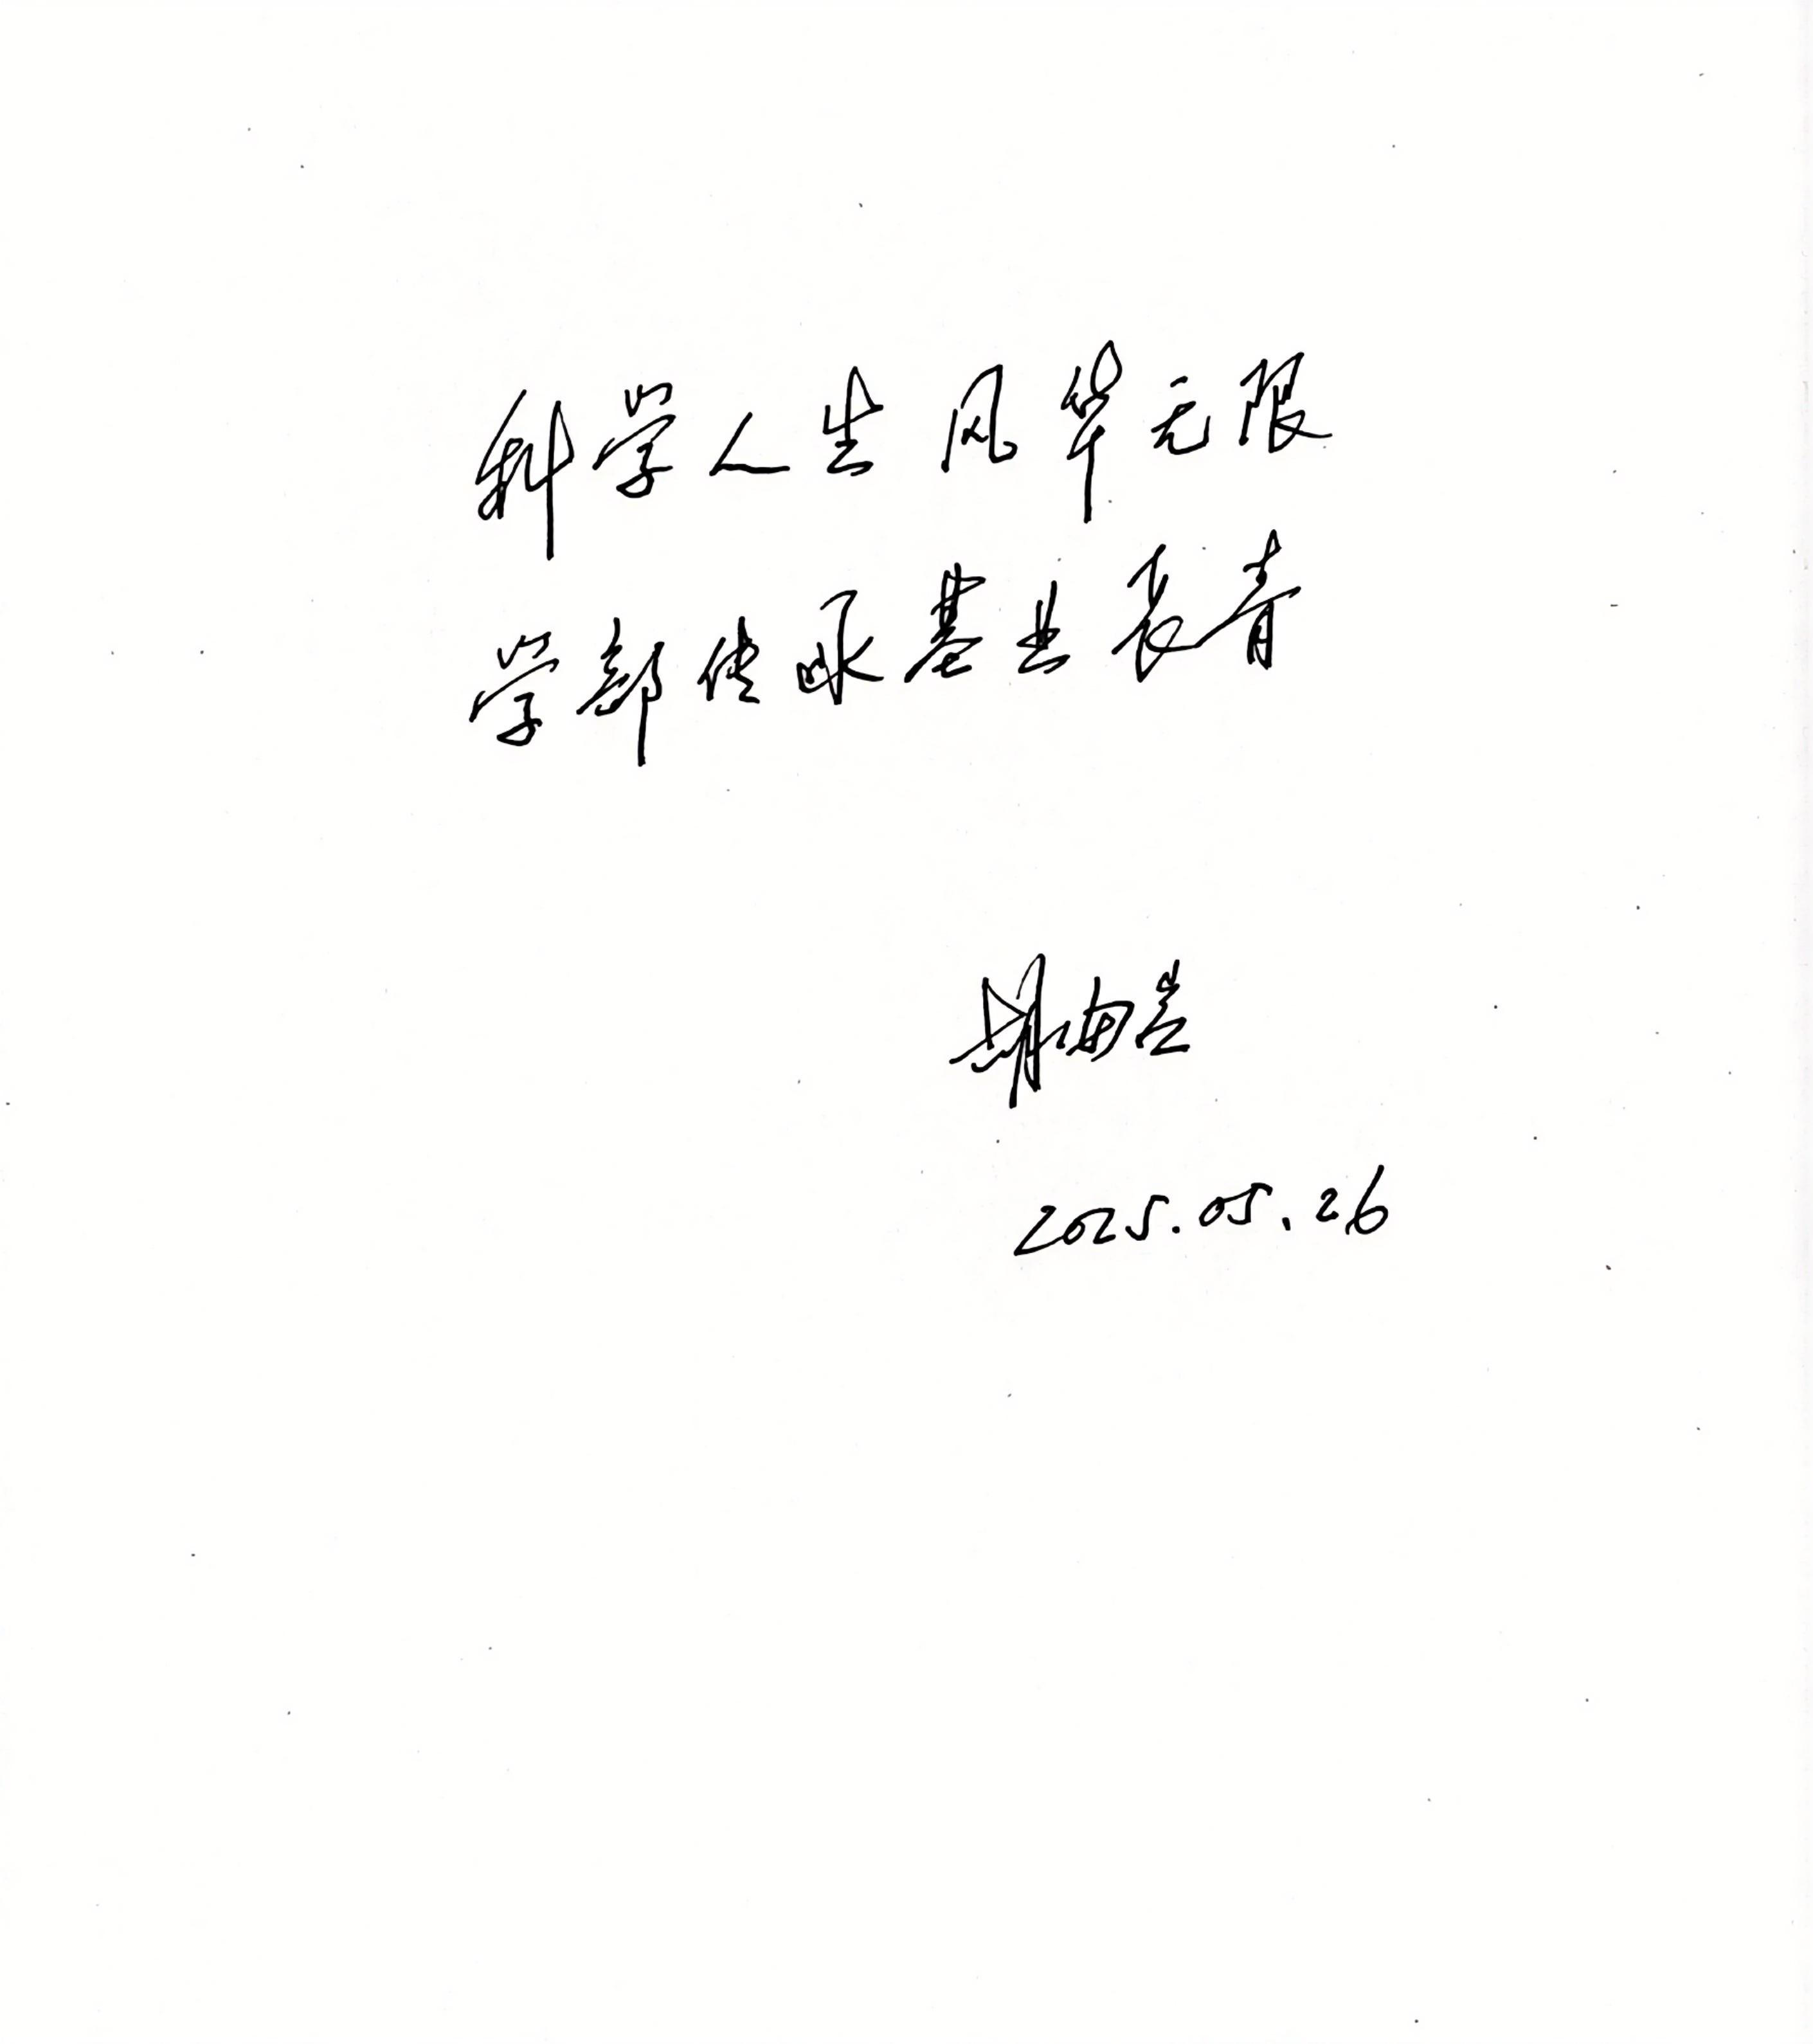 科学人生 风华无限
学部传承 基业长青
2025.05.26